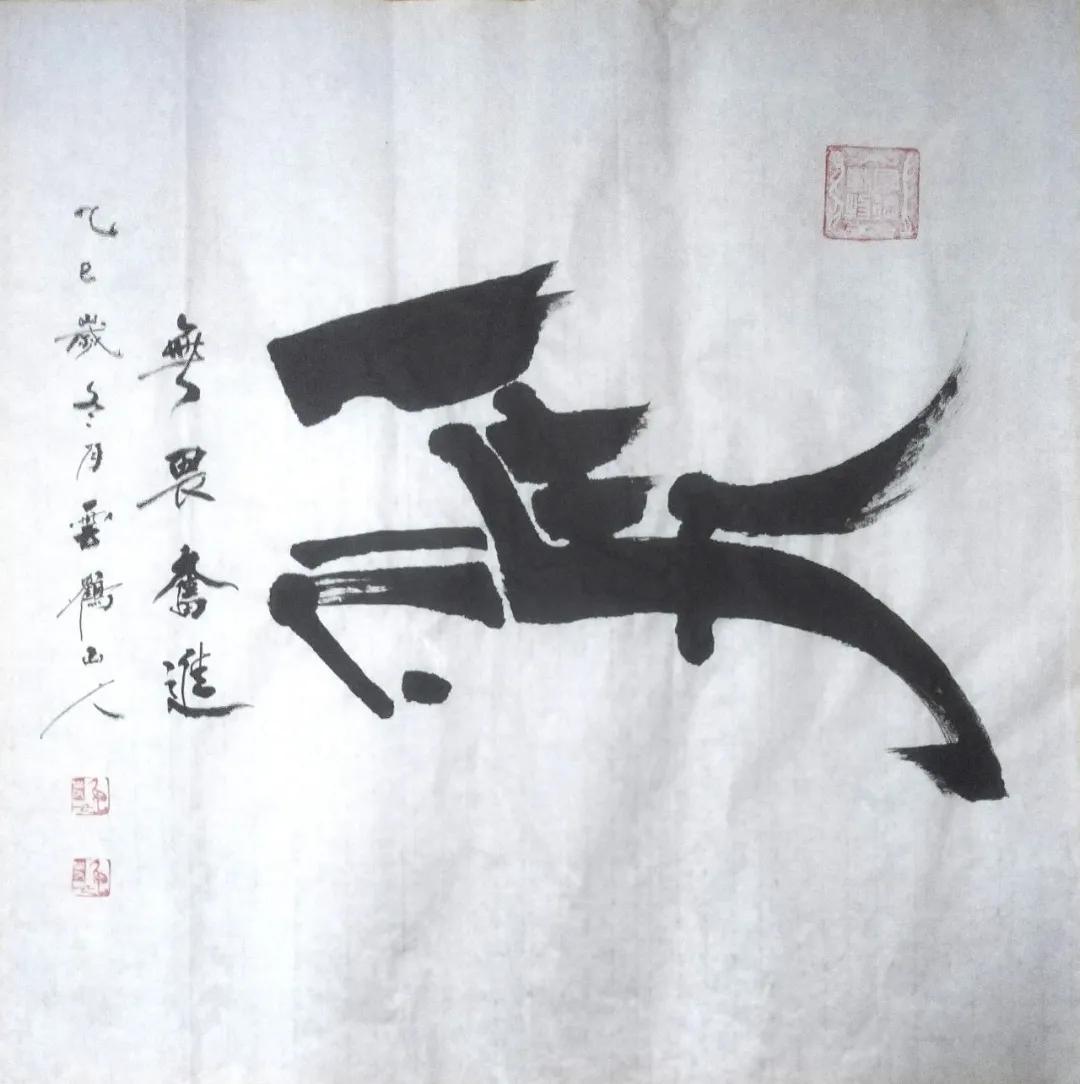 無畏奮進
乙巳歲冬月雲鶴山人